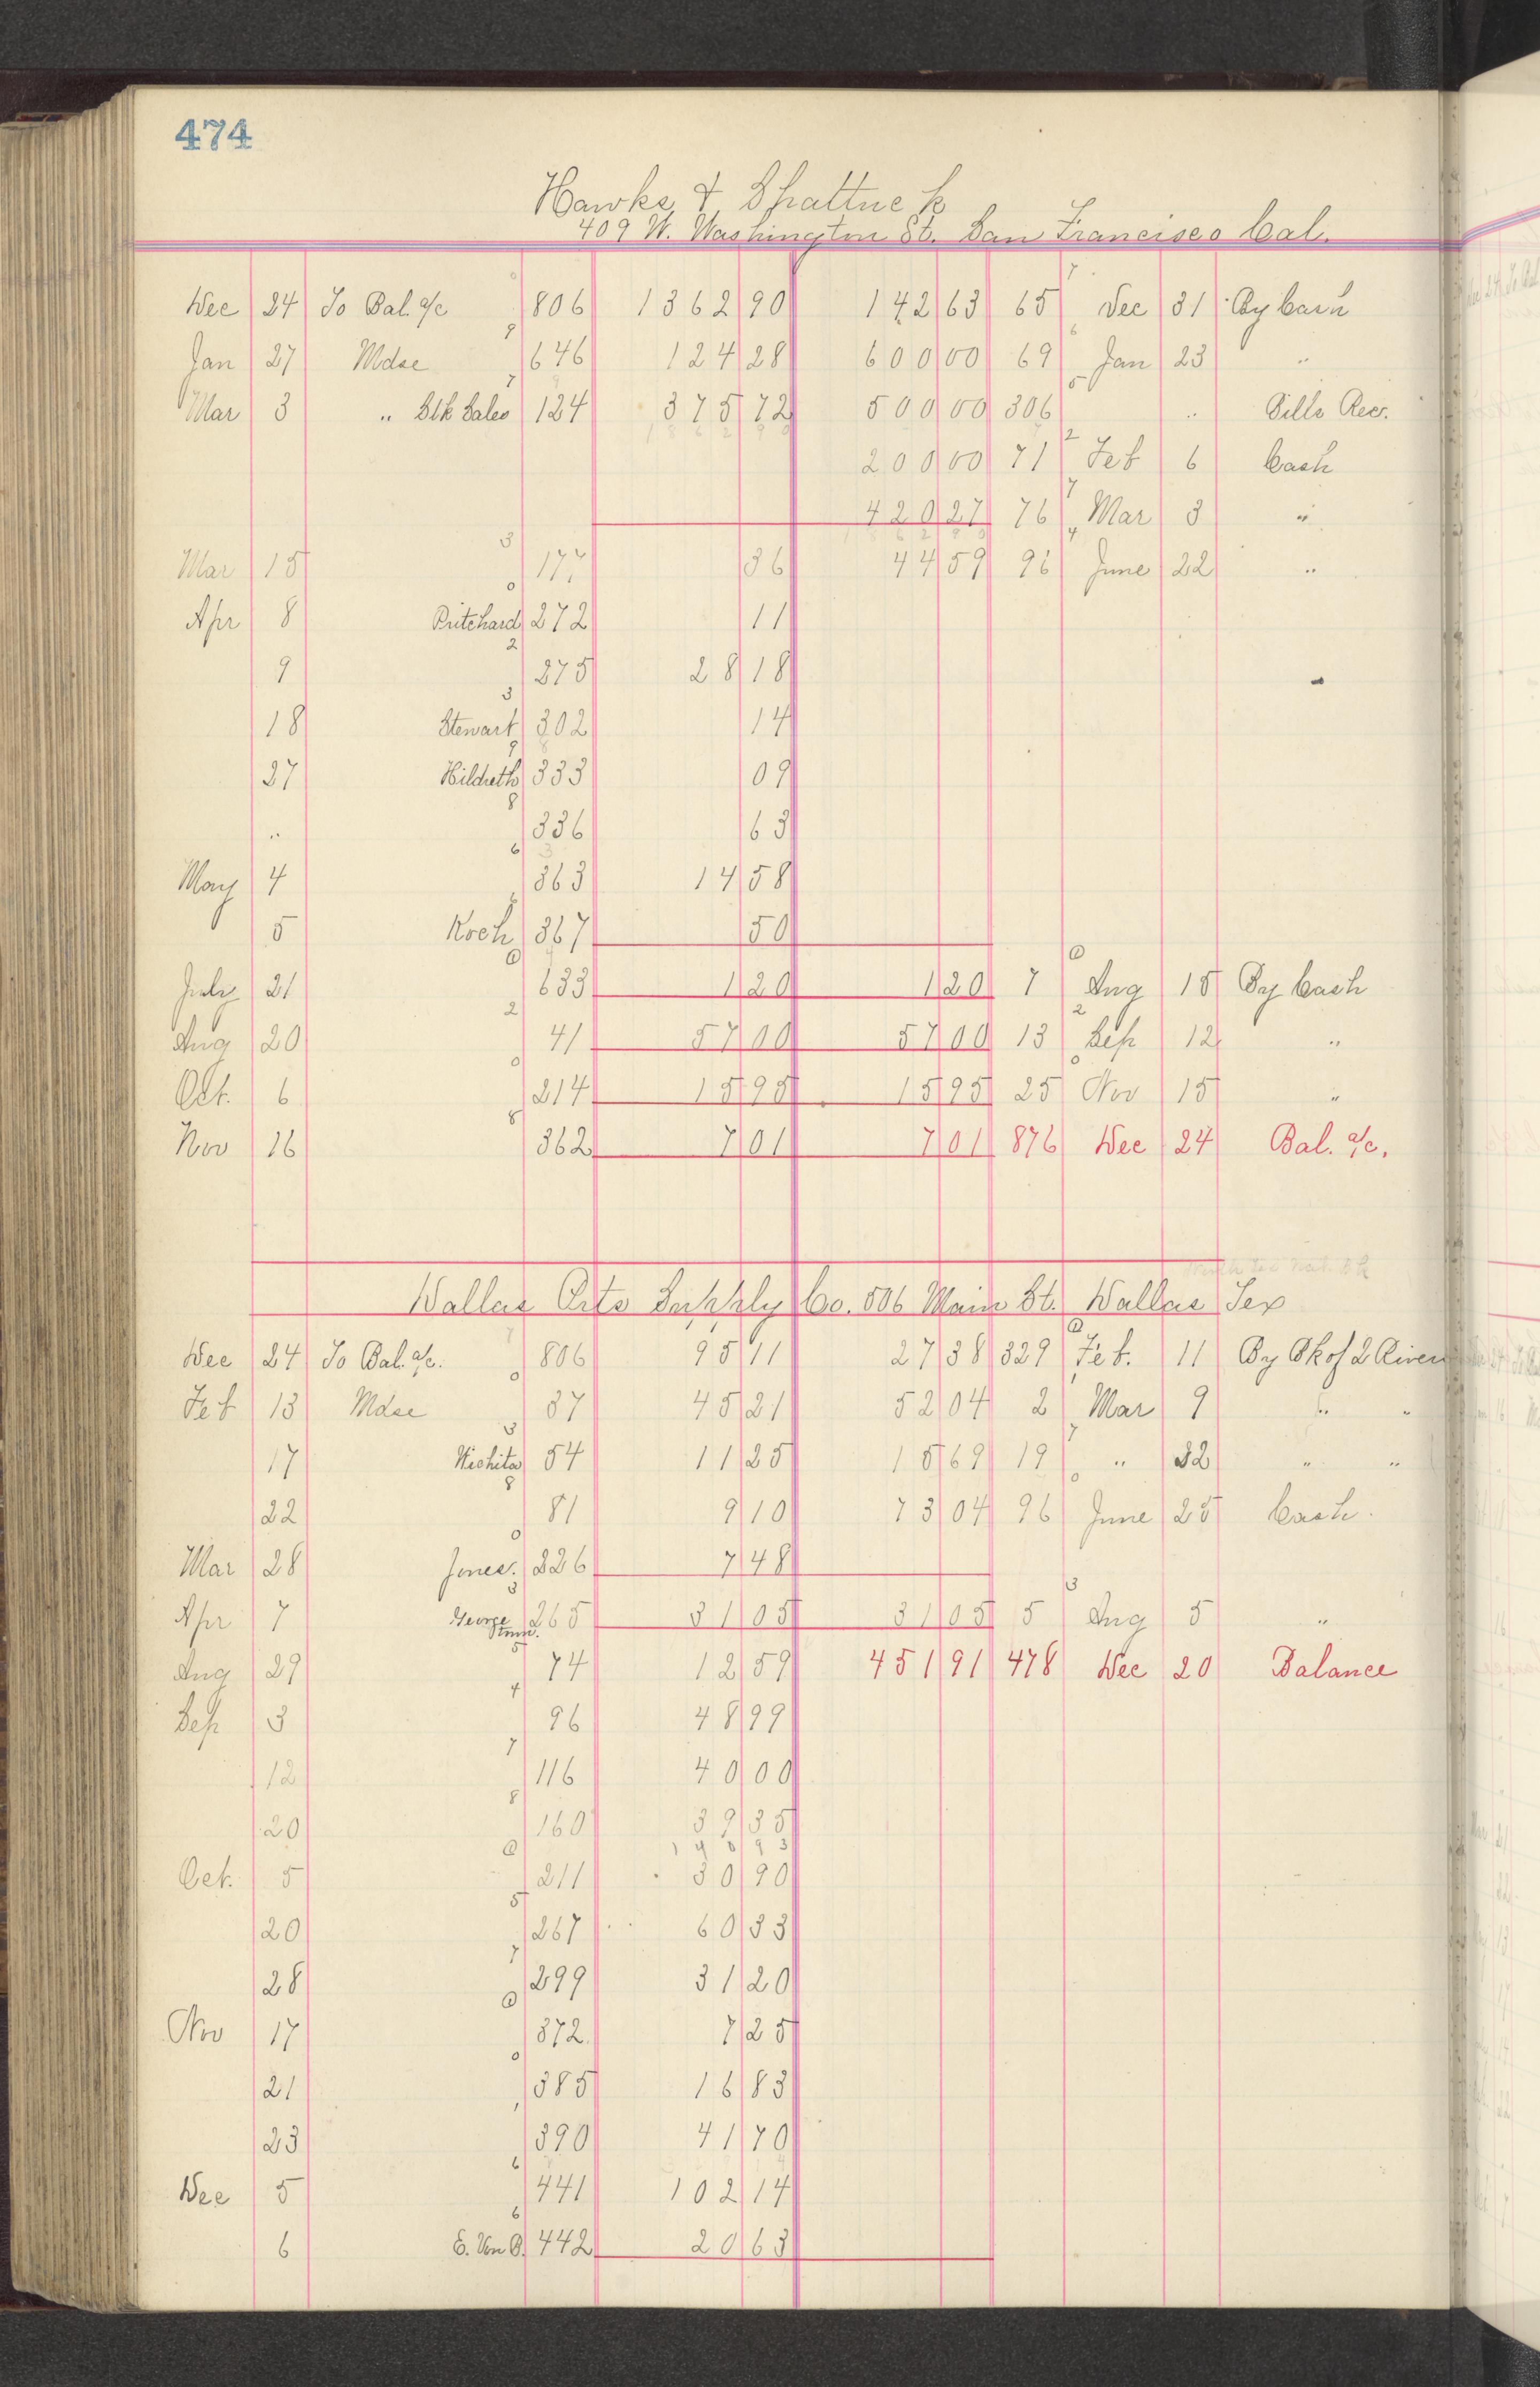 474
Hawks & Shattuck
409 W. Washington St. San Francisco Cal.
Dec 24 To Bal. a/c 806 1362 90 142 63 65 Dec 31 By Cash
Jan 27 Mdse 646 124 28 600 00 69 Jan 23 "
Mar 3 " Stk Sales 124 375 72 500 00 306 " Bills Rec.
200 00 71 Feb 6 Cash
420 27 76 Mar 3 "
Mar 15 177 36 44 59 96 June 22 "
Apr 8 Pritchard 272 11
9 275 28 18
18 Stewart 302 14
27 Hildreth 333 09
" 336 63
May 4 363 14 58
5 Koch 367 50
July 21 633 1 20 1 20 7 Aug 15 By Cash
Aug 20 41 57 00 57 00 13 Sep 12 "
Oct. 6 214 15 95 15 95 25 Nov 15 "
Nov 16 362 7 01 7 01 876 Dec 24 Bal. a/c.
Dallas Opto Supply Co. 506 Main St. Dallas Tex
Dec 24 To Bal. a/c. 806 95 11 27 38 329 Feb. 11 By Bk of 2 Rivers
Feb 13 Mdse 37 45 21 52 04 2 Mar 9 " "
17 Wichita 54 11 25 15 69 19 " 22 " "
22 81 9 10 73 04 96 June 25 Cash.
Mar 28 Jones. 226 7 48
Apr 7 George 265 31 05 31 05 5 Aug 5 "
Aug 29 74 12 59 451 91 478 Dec 20 Balance
Sep 3 96 48 99
12 116 40 00
20 160 39 35
Oct. 5 211 30 90
20 267 60 33
28 299 31 20
Nov 17 372 7 25
21 385 16 83
23 390 41 70
Dec 5 441 102 14
6 E. Von B. 442 20 63